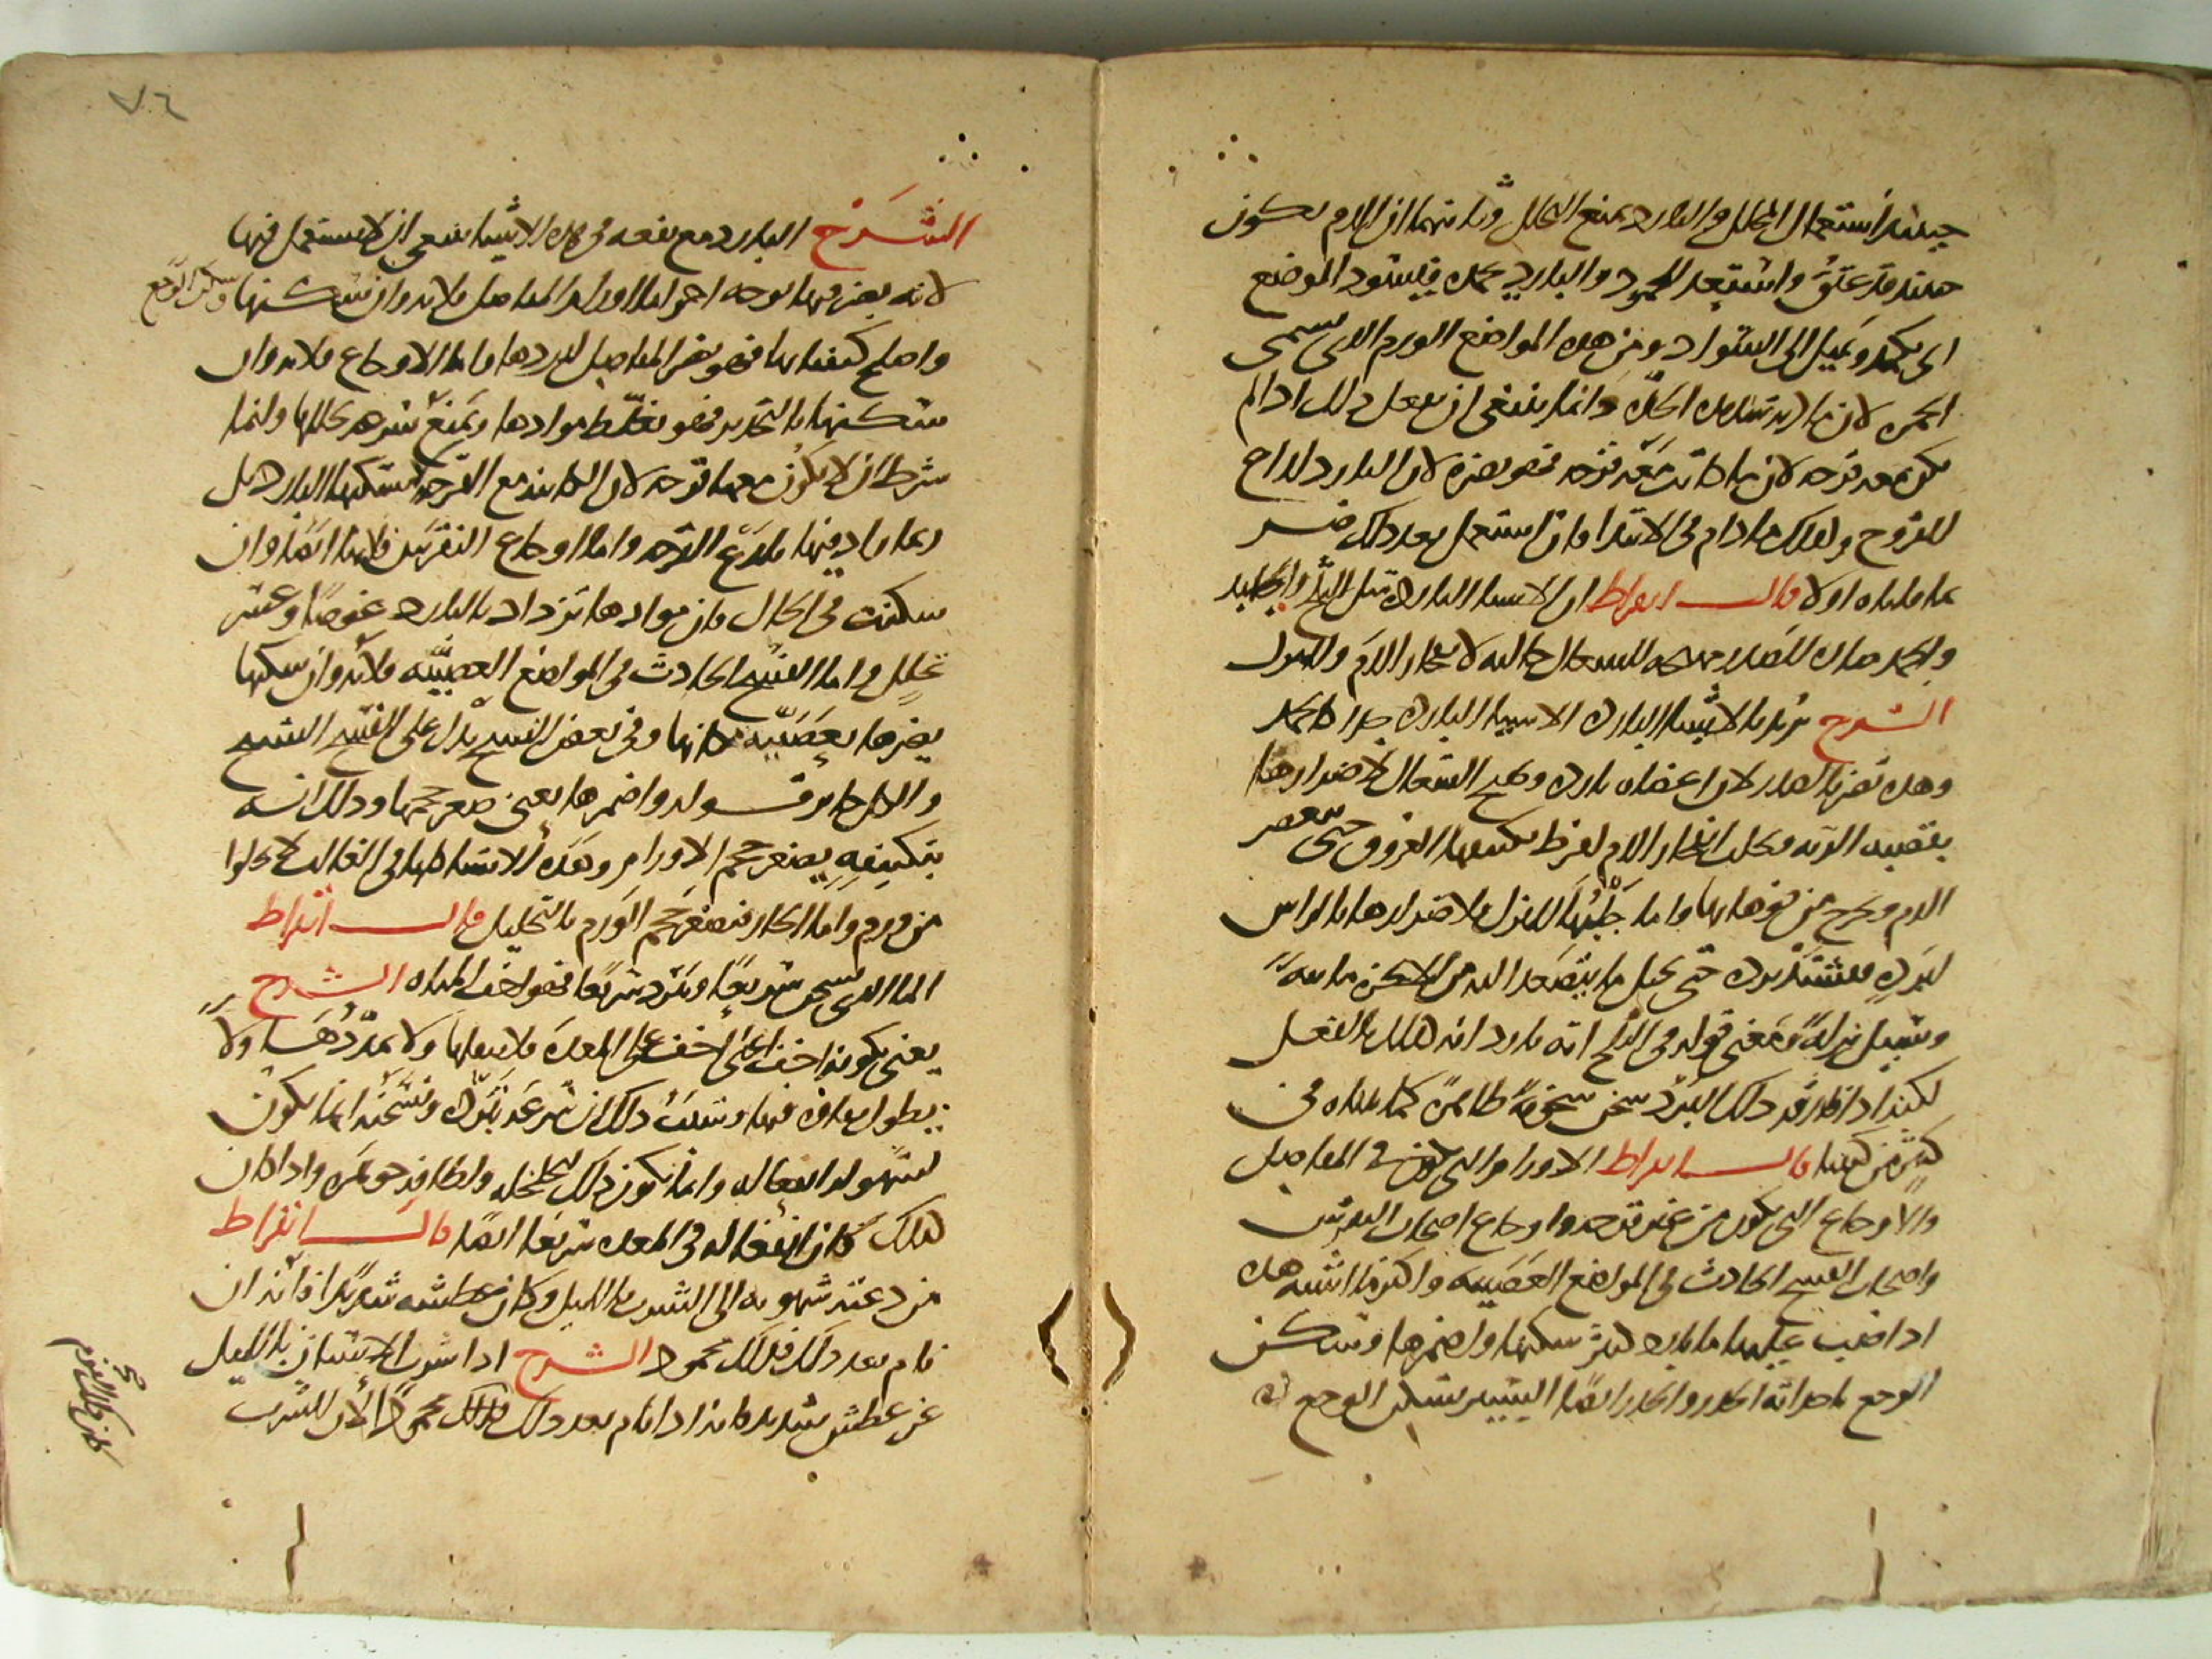 حينئذ استعمال المحلل والبارد يمنع التحلل وثانيهما ان الدم يكون
حينئذ قد عتق واستعد للجمود والبارد يجمده فيسود الموضع
اي يكمد ويميل الى السواد ومن هذه المواضع الورم الذي يسمى
الحمرة لان مادته شديدة الحدة وانما ينبغي ان يفعل ذلك اذا لم
يكن معه قرحة لان ما كانت معه قرحة فهو يضره لان البارد لذاع
للقروح وكذلك ما دام في الابتداء فان استعمل بعد ذلك ضر
بما قلناه اولا قال ابقراط ان الاشياء الباردة مثل الثلج والجليد
والجمد ضارة للصدر مهيجة للسعال جالبة لانفجار الدم والنزل
الشرح يريد بالاشياء الباردة الاشياء الباردة جدا كالجمد
وهذه تضر بالصدر لان اعضاه باردة وتهيج السعال لاضرارها
بقصبة الرئة وتجلب انفجار الدم لفرط تكثيفها العروق حتى ينعصر
الدم ويخرج من فوهاتها واما جلبها للنزل فلاضرارها بالراس
لبرده فيشتد برده حتى يحيل ما يتصعد اليه من الابخرة مائية
وتسيل نزلة ومعنى قوله في الثلج انه بارد انه كذلك بالفعل
لكنه اذا فارقه ذلك البرد سخن سخونة ظاهرة كما بيناه في
كثير من كتبنا قال ابقراط الاورام التي تكون في المفاصل
والاوجاع التي تكون من غير قرحة واوجاع اصحاب النقرس
واصحاب الفسخ الحادث في المواضع العصبية واكثر ما اشبه هذه
اذا صب عليها ماء بارد كثير سكنها واضمرها وسكن
الوجع باحداثه الخدر والخدر ايضا اليسير يسكن الوجع
الشرح البارد مع نفعه في هذه الاشياء ينبغي ان لا يستعمل فيها
لانه يضر فيها بوجه اخر اما اورام المفاصل فلانه وان سكنها وسكن الوجع
واصلح كيفياتها فهو يضر المفاصل لبردها واما الاوجاع فلانه وان
سكنها بالتخدير فهو يغلظ موادها ويمنع تحللها وانما
شرط ان لا يكون معها قرحة لان الكائنة مع القرحة لا يسكنها البارد بل
ربما زاد فيها بلذع القرحة واما اوجاع النقرس فلانها ايضا وان
سكنت في الحال فان موادها تزداد بالبارد غوصا وعسر
تحلل واما الفسخ الحادث في المواضع العصبية فلانه وان سكنها
يضرها بعصبية مكانها وفي بعض النسخ بدل على الفسخ التشنج
والكل جائز قوله واضمرها يعني صغر حجمها وذلك انه
بتكثيفه يصغر حجم الاورام وهذه الاشياء كلها في الغالب لا تخلوا
من ورم واما الحار فيصغر حجم الورم بالتحليل قال ابقراط
الماء الذي يسخن سريعا ويبرد سريعا فهو اخف المياه الشرح
يعني بكونه اخف انه اخف على المعدة فلا يثقلها ولا يمددها ولا
يطول بقاؤه فيها وسبب ذلك ان سرعة تبرده وتسخنه انما يكون
لسهولة انفعاله وانما يكون ذلك لتخلخله ولطافة جوهره واذا كان
كذلك كان انفعاله في المعدة سريعا ايضا قال ابقراط
من دعته شهوته الى الشرب بالليل وكان عطشه شديدا فانه ان
نام بعد ذلك فذلك محمود الشرح اذا شرب الانسان بالليل
عن عطش شديد فانه اذا نام بعد ذلك فذلك محمود لان للشرب